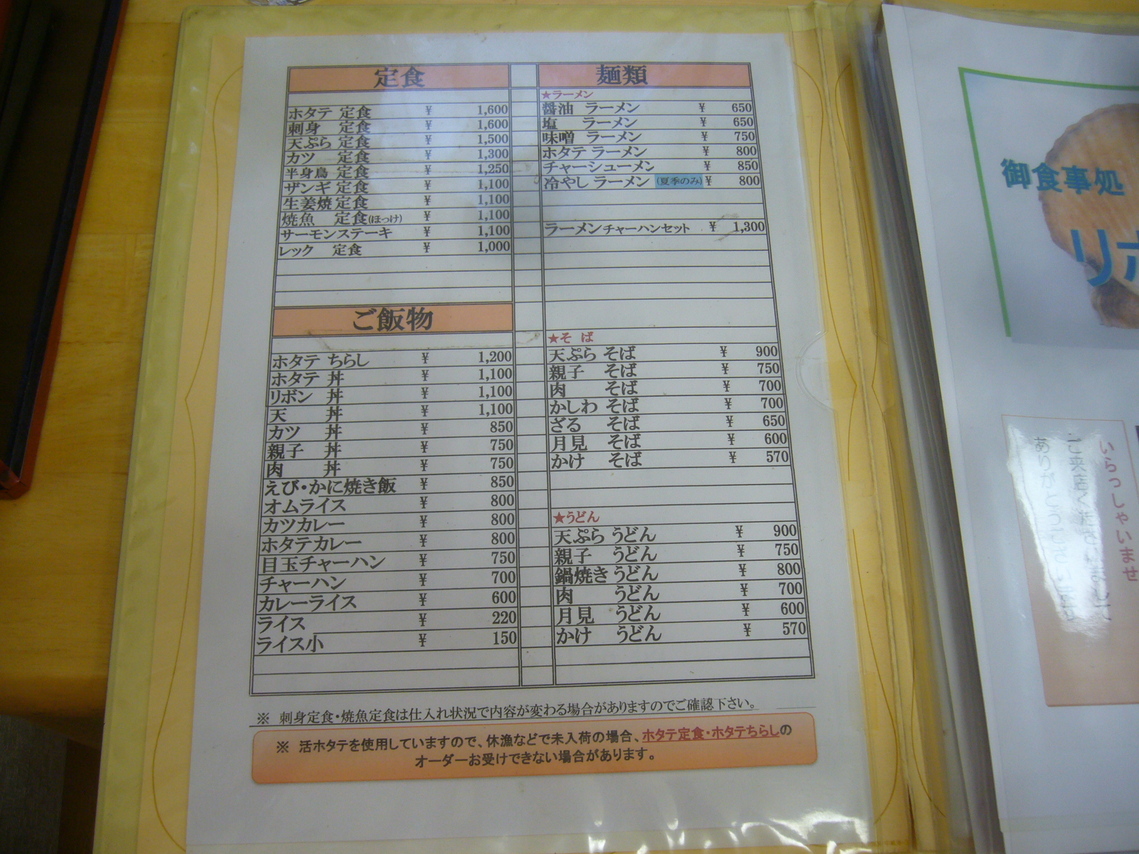 定食
ホタテ 定食 ¥ 1,600
刺身 定食 ¥ 1,600
天ぷら 定食 ¥ 1,500
カツ 定食 ¥ 1,300
半身鳥 定食 ¥ 1,250
ザンギ 定食 ¥ 1,100
生姜焼 定食 ¥ 1,100
焼魚 定食(ほっけ) ¥ 1,100
サーモンステーキ ¥ 1,100
レック 定食 ¥ 1,000
ご飯物
ホタテ ちらし ¥ 1,200
ホタテ 丼 ¥ 1,100
リボン 丼 ¥ 1,100
天 丼 ¥ 1,100
カツ 丼 ¥ 850
親子 丼 ¥ 750
肉 丼 ¥ 750
えび・かに焼き飯 ¥ 850
オムライス ¥ 800
カツカレー ¥ 800
ホタテカレー ¥ 800
目玉チャーハン ¥ 750
チャーハン ¥ 700
カレーライス ¥ 600
ライス ¥ 220
ライス小 ¥ 150
麺類
★ラーメン
醤油 ラーメン ¥ 650
塩 ラーメン ¥ 650
味噌 ラーメン ¥ 750
ホタテ ラーメン ¥ 800
チャーシューメン ¥ 850
冷やし ラーメン (夏季のみ) ¥ 800
ラーメンチャーハンセット ¥ 1,300
★そば
天ぷら そば ¥ 900
親子 そば ¥ 750
肉 そば ¥ 700
かしわ そば ¥ 700
ざる そば ¥ 650
月見 そば ¥ 600
かけ そば ¥ 570
★うどん
天ぷら うどん ¥ 900
親子 うどん ¥ 750
鍋焼き うどん ¥ 800
肉 うどん ¥ 700
月見 うどん ¥ 600
かけ うどん ¥ 570
※ 刺身定食・焼魚定食は仕入れ状況で内容が変わる場合がありますのでご確認下さい。
※ 活ホタテを使用していますので、休漁などで未入荷の場合、ホタテ定食・ホタテちらしの
オーダーお受けできない場合があります。
御食事処
リボ
いらっしゃいませ